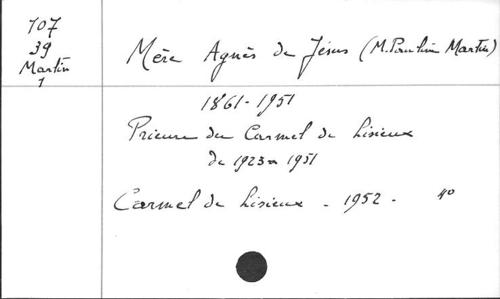 107
39
Martin
1
Mère Agnès de Jésus (M. Pauline Martin)
1861-1951
Prieure du Carmel de Lisieux
de 1923 à 1951
Carmel de Lisieux - 1952 - 4º